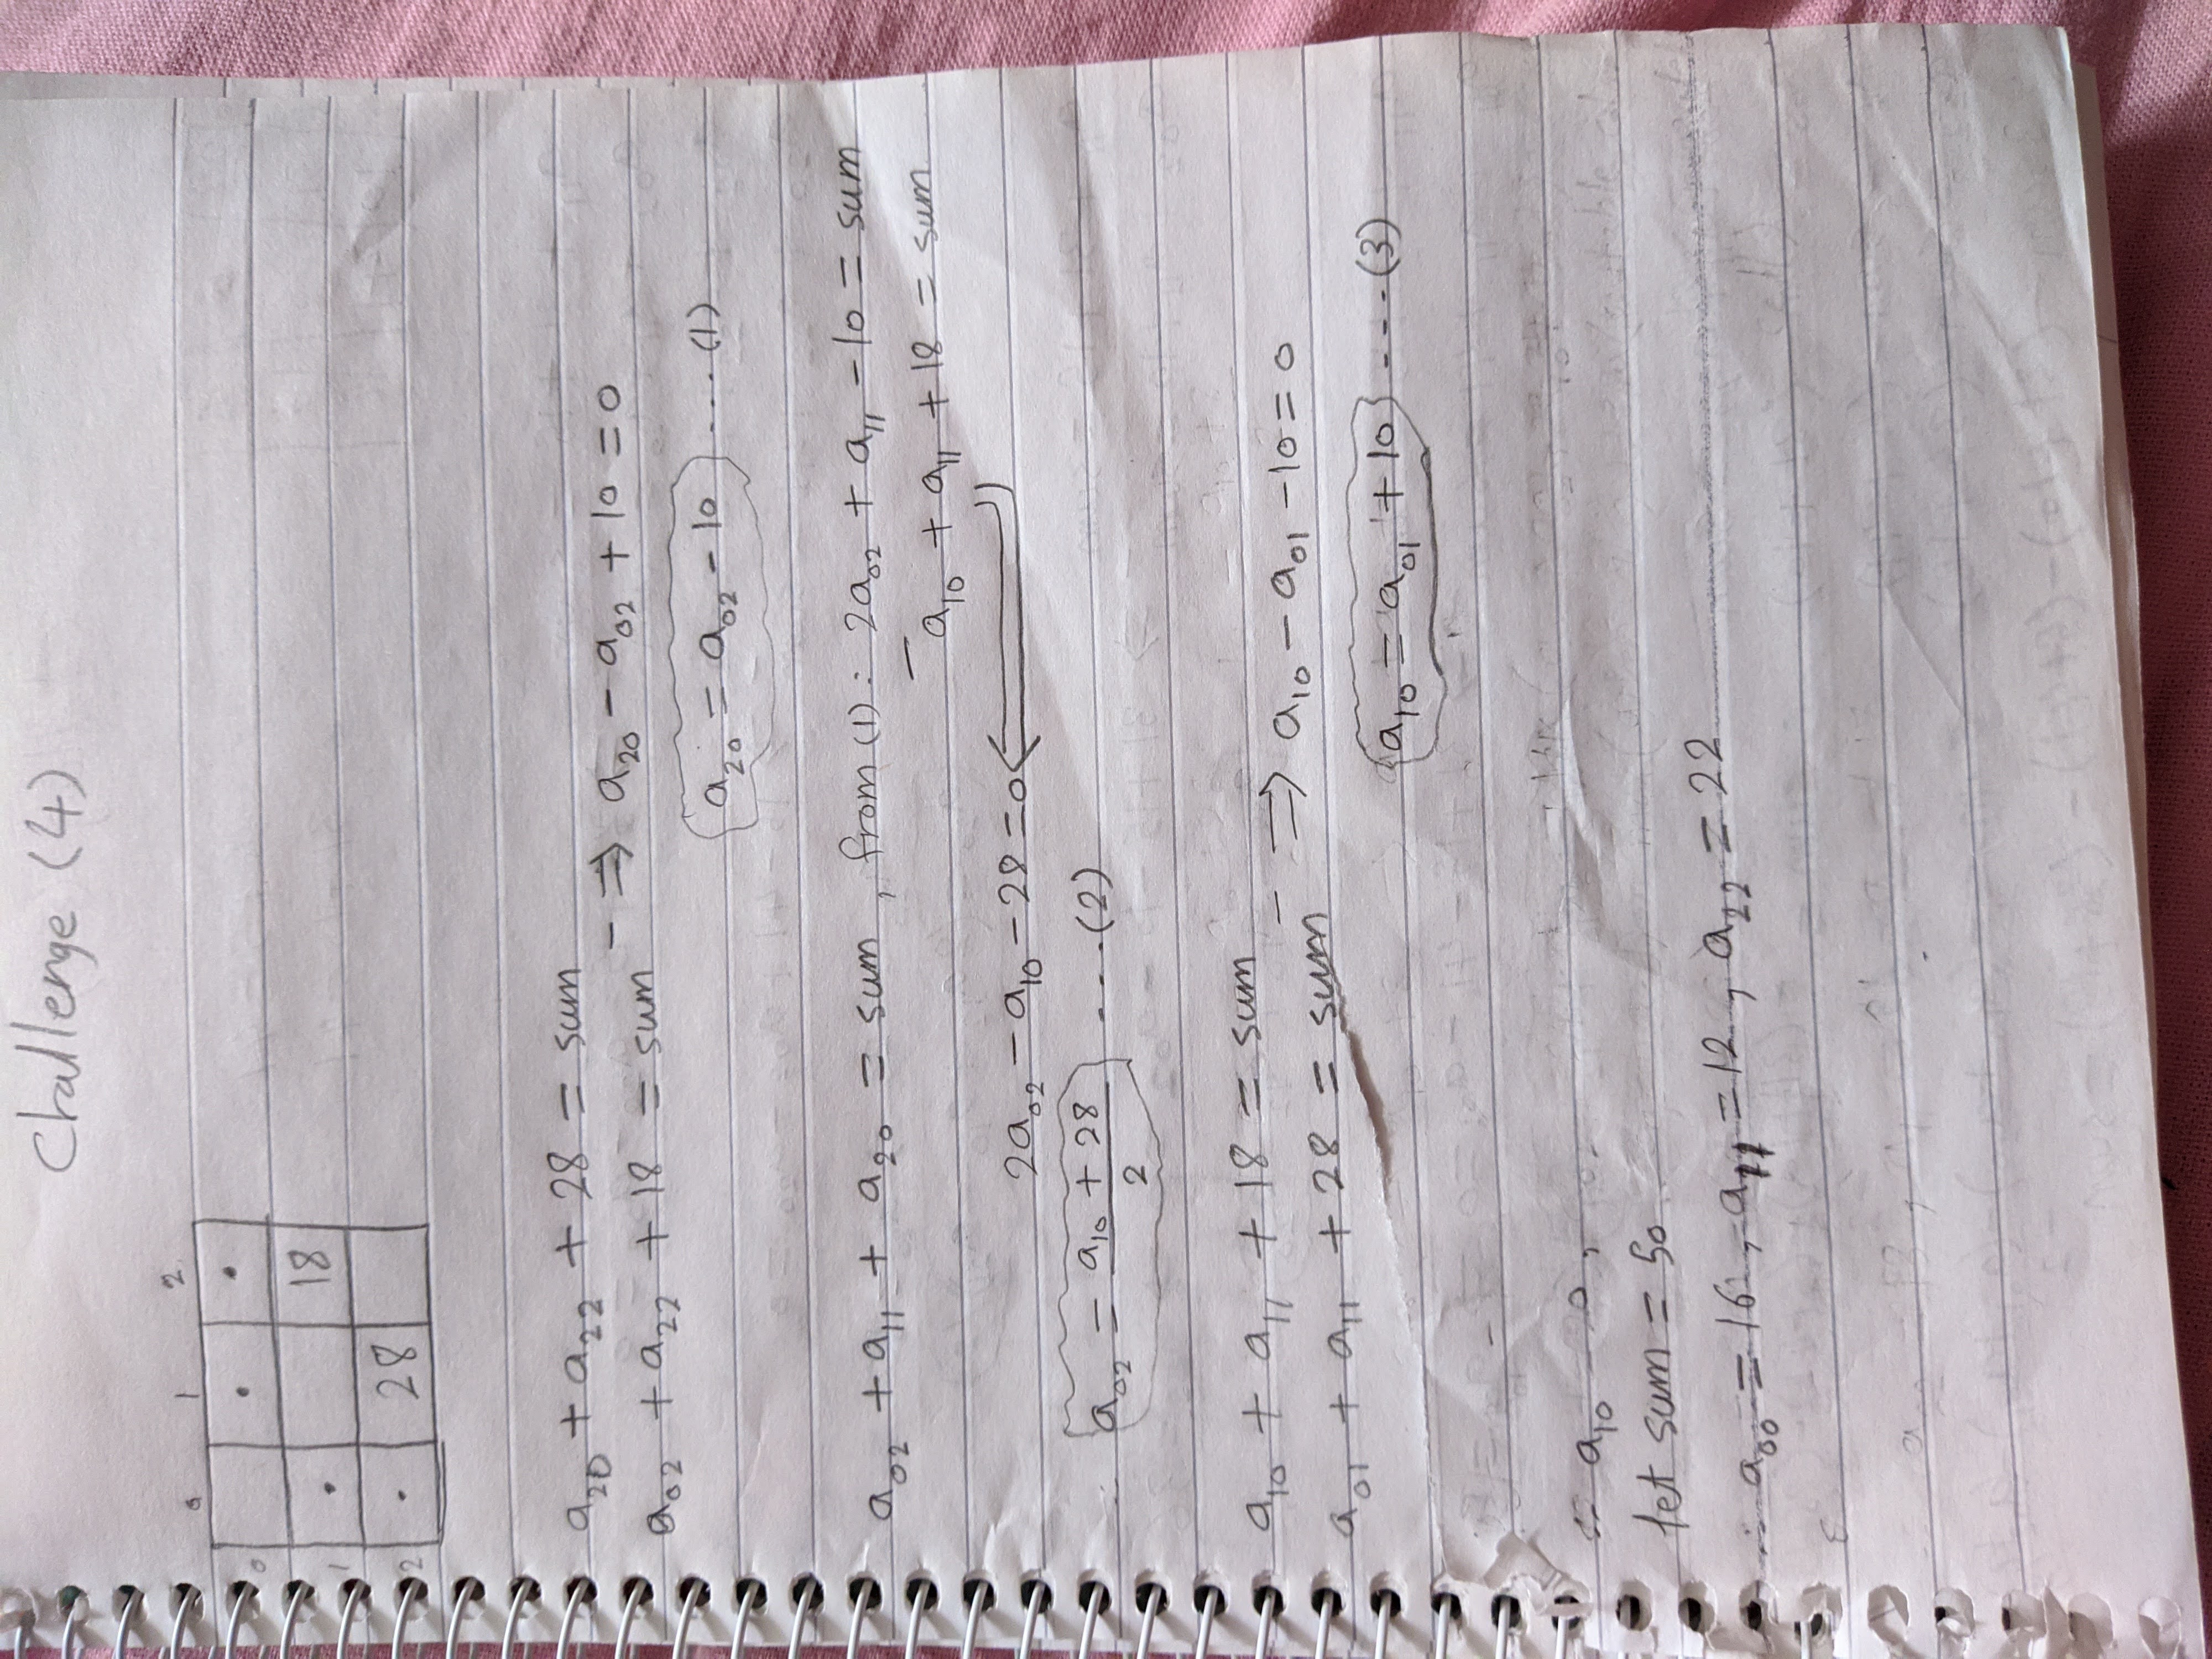 Challenge (4)
0 1 2
0
1 18
2 28
a₂₀ + a₂₂ + 28 = sum
- ⇒ a₂₀ - a₀₂ + 10 = 0
a₀₂ + a₂₂ + 18 = sum
a₂₀ = a₀₂ - 10 ---- (1)
a₀₂ + a₁₁ + a₂₀ = sum , from (1) : 2a₀₂ + a₁₁ - 10 = sum
- a₁₀ + a₁₁ + 18 = sum
2a₀₂ - a₁₀ - 28 = 0 ⇐
a₀₂ = (a₁₀ + 28)/2 ---- (2)
a₁₀ + a₁₁ + 18 = sum
- ⇒ a₁₀ - a₀₁ - 10 = 0
a₀₁ + a₁₁ + 28 = sum
a₁₀ = a₀₁ + 10 ---- (3)
a₁₀ 0 ,
let sum = 50
∴ a₀₀ = 16 , a₁₁ = 12 , a₂₂ = 22